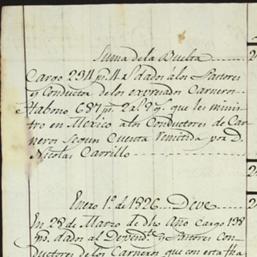 Suma de la Buelta
Cargo 2311 ps. 4 rs. dados á los Pastores
y Conducta de los expresados Carneros
Habono 687 ps. 2 rs. 9 gs. que les minis
tro en Mexico a los Conductores de Car
neros segun Cuenta remitida por D.
Nicolas Carrillo
Enero 1º de 1826 Deve
En 28 de Marzo de dho Año Cargo 198
ps. dados al Depend.te y Pastores Con
ductores de los Carneros que con esta fha